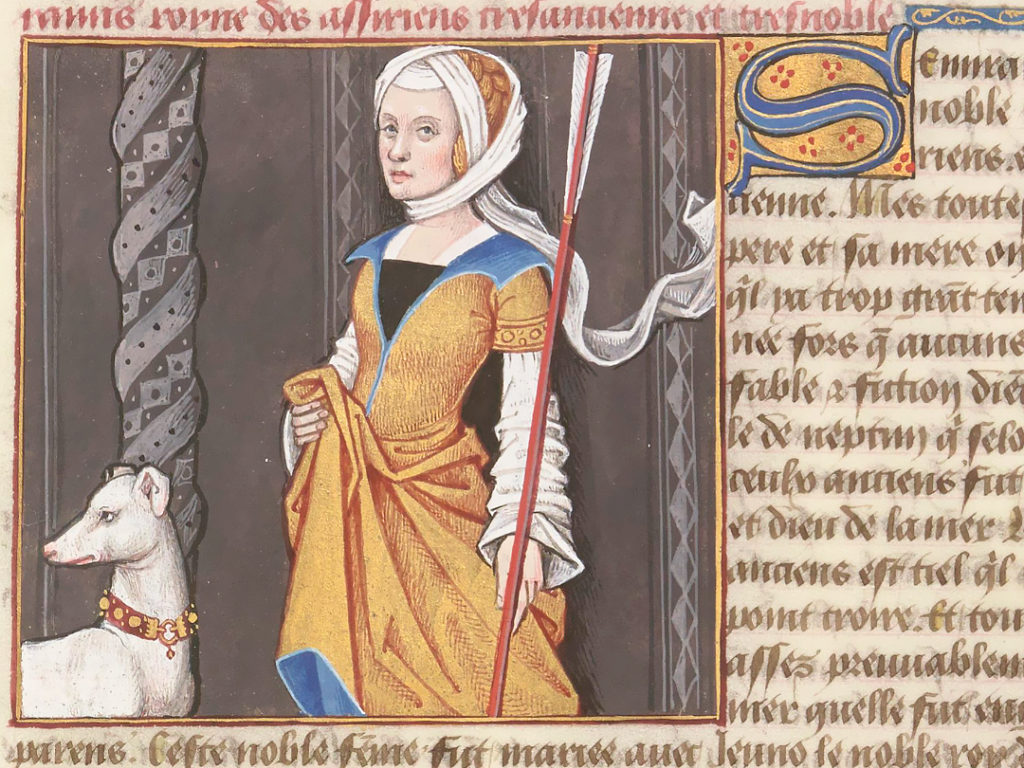 ramis royne des assiriens tresancienne et tresnoble
Semira
noble
riens.
cienne. Mes toute
pere et sa mere on
q̃l ya trop grãt tem
nee fors q̃ aucuns
fable & fiction dien
le de neptun q̃ selo
ceulx anciens fut
et dieu de la mer
anciens est tiel q̃l
point croire. Et tou
asses preuuablem
mer quelle fut
parens. Ceste noble fẽme fut mariee auec Jenno le noble roy de